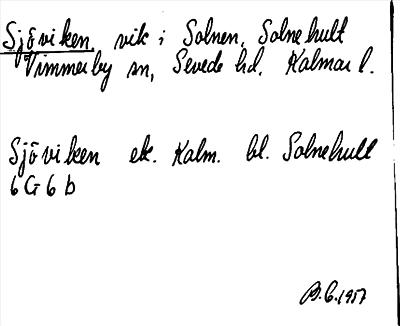 Sjöviken, vik i Solnen, Solnehult
Vimmerby sn, Sevede hd, Kalmar l.
Sjöviken ek. Kalm. bl. Solnehult
6 G 6 b
B.C. 1957